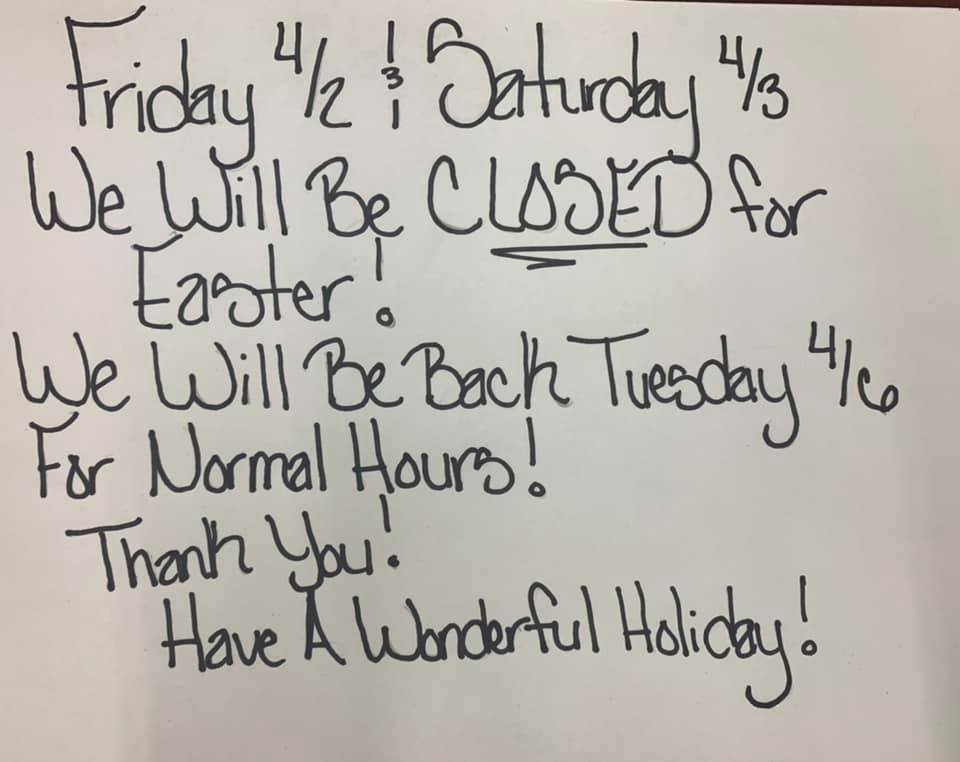 Friday 4/2 & Saturday 4/3
We Will Be CLOSED for
Easter!
We Will Be Back Tuesday 4/6
For Normal Hours!
Thank You!
Have A Wonderful Holiday!